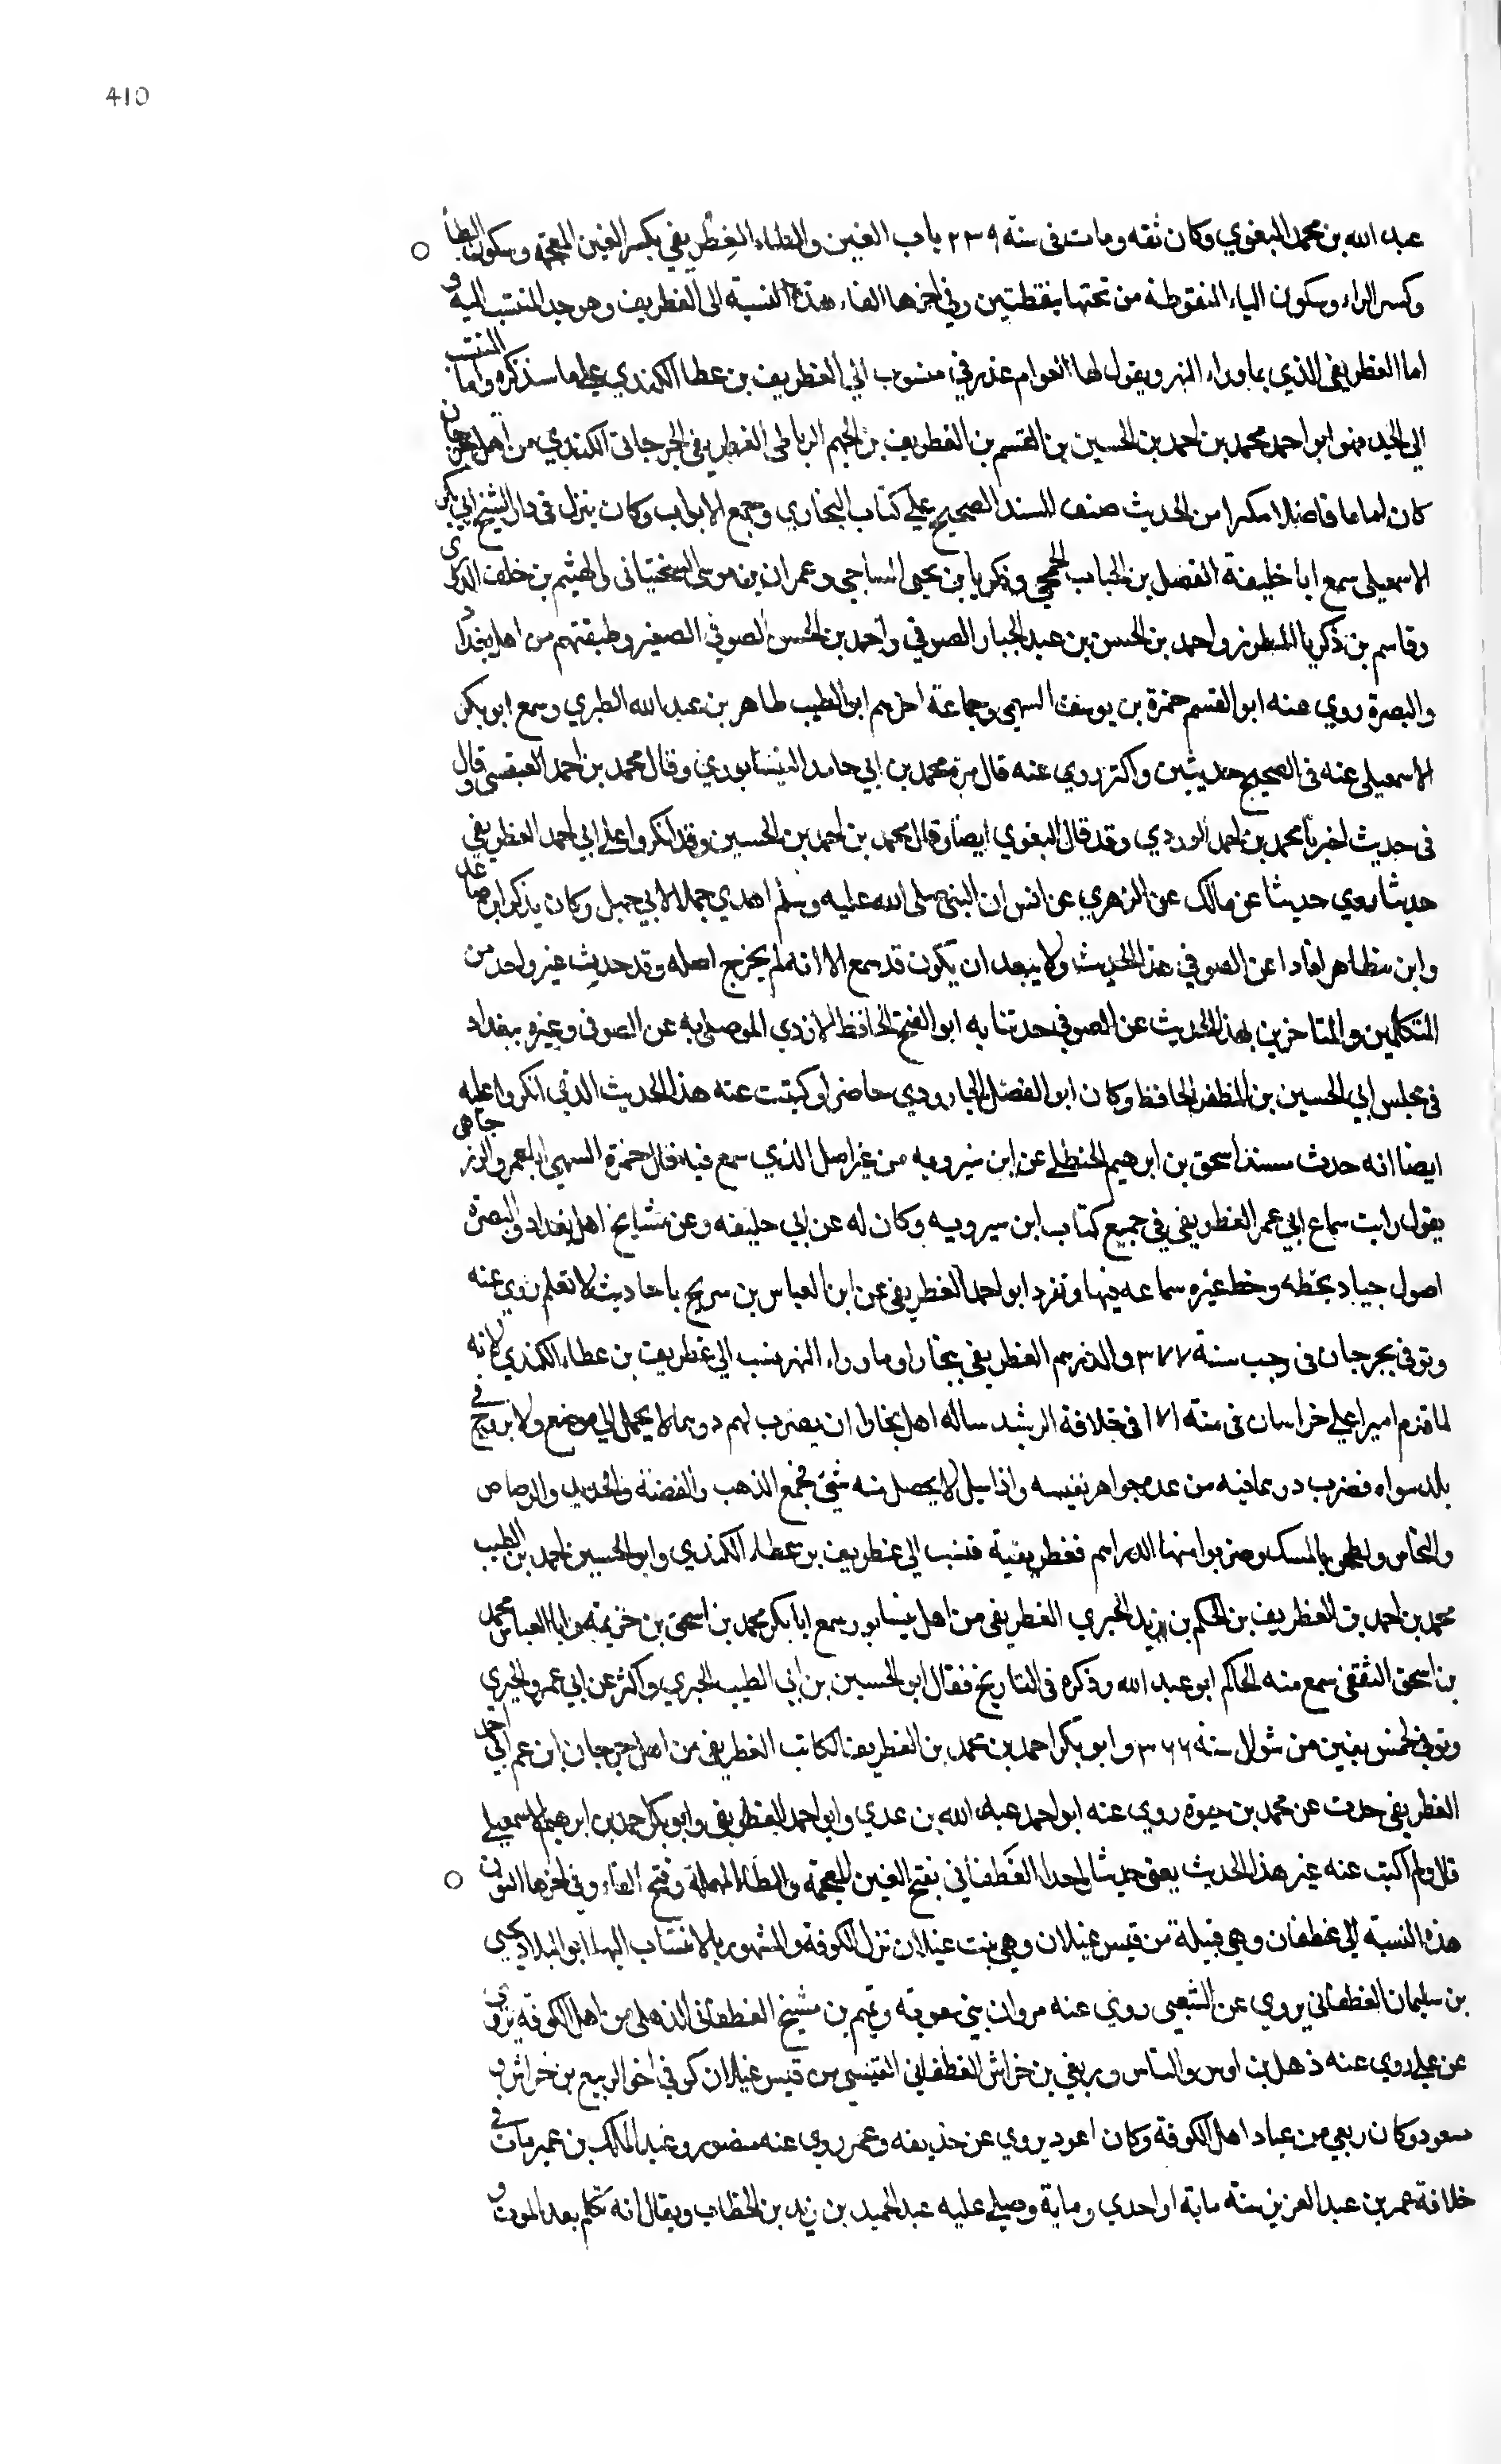 410
عبد الله بن محمد البغوي وكان ثقه ومات في سنة ٢٣٩ باب الغين والطاء الغِطْريفي بكسر الغين المعجمة وسكون الطا
وكسر الراء وسكون الياء المنقوطة من تحتها بنقطتين وفي اخرها الفاء هذه النسبة الى الغطريف وهو جد المنتسب اليه و
اما الغطريفي الذي بما وراء النهر ويقول لها العوام غدرفي منسوب الي الغطريف بن عطا الكندي علي ما سنذكره واما المنتسب
الي الجد فهو ابو احمد محمد بن احمد بن الحسين بن القسم بن الغطريف بن الجهم الرباطي الغطريفي الجرجاني الكندي من اهل جرجان
كان اماما فاضلا مكثرا من الحديث صنف المسند الصحيح علي كتاب البخاري وجمع الابواب وكان ينزل في دار الشيخ ابي بكر
الاسمعيلي سمع ابا خليفة الفضل بن الحباب الجمحي وزكريا بن يحيى الساجي وعمران بن موسى السختياني والهيثم بن خلف الدوري
وقاسم بن زكريا المطرز واحمد بن الحسن بن عبد الجبار الصوفي واحمد بن الحسن الصوفي الصغير وطبقتهم من اهل بغداد
والبصرة روي عنه ابو القسم حمزة بن يوسف السهمي وجماعة اخرهم ابو الطيب طاهر بن عبد الله الطبري وسمع ابو بكر
الاسمعيلي عنه في الصحيح حديثين واكثر روي عنه قال مرة محمد بن ابي حامد النيسابوري وقال محمد بن احمد العبقسي وقال
في حديث اخبرنا محمد بن احمد الوردي وقد قال البغوي ايضا وقال محمد بن احمد بن الحسين وقد انكروا علي ابي احمد الغطريفي
حديثا روي حديثا عن مالك عن الزهري عن انس ان النبي صلى الله عليه وسلم اهدي جملا لابي جهل وكان يذكر ان صاعد
وابن مظاهر افادا عن الصوفي هذا الحديث ولا يبعد ان يكون قد سمع الا انه لم يخرج اصله وقد حديث غير واحد من
المتكلمين والمتاخرين بهذا الحديث عن الصوفي حدثنا به ابو الفتح الحافظ الازدي الموصلي به عن الصوفي وغيره ببغداد
في مجلس ابي الحسين بن المظفر الحافظ وكان ابو الفضل الجارودي حاضرا وكتبت عنه هذا الحديث الذي انكروا عليه
ايضا انه حدث مسند اسحق بن ابرهيم الحنظلي عن ابن شيرويه من غير اصل الذي سمع فيه فقال حمزة السهمي ابا عمرو الرزجاهي
يقول رايت سماع ابي عمر الغطريفي في جميع كتاب ابن سيرويه وكان له عن ابي حليفه وعن مشايخ اهل بغداد والبصرة
اصول جياد بخطه وخط غيره سماعه فيها وتفرد ابو احمد الغطريفي عن ابن العباس بن سريج باحاديث لا تعلم روي عنه
وتوفي بجرجان في رجب سنة ٣٧٧ والدرهم الغطريفي ببخارا وما وراء النهر ينسب الي غطريف بن عطاء الكندي لانه
لما قدم اميرا علي خراسان في سنة ١٧١ في خلافة الرشيد ساله اهل بخارا ان يضرب لهم دوهما لا يحمل الي موضع ولا يروج في
بلد سواه فضرب درهما فيه من عدة جواهر نفيسه واذا سيل لا يحصل منه شي فجمع الذهب والفضة والحديد والرصاص
والنحاس ولطخه بالمسك وضربوا منها الدراهم فغطريفية فنسب الي غطريف بن عطاء الكندي وابو الحسين احمد بن الطيب
محمد بن احمد بن الغطريف بن الحكم بن يزيد الحيري الغطريفي من اهل نيسابور سمع ابا بكر محمد بن اسحق بن خزيمه وابا العباس محمد
بن اسحق الثقفي سمع منه الحاكم ابو عبد الله وذكره في التاريخ فقال ابو الحسين بن ابي الطيب الحيري واكثر عن ابي عمرو الحيري
وتوفي لخمس بقين من شوال سنة ٣٦٦ وابو بكر احمد بن محمد بن الغطريف الكاتب الغطريفي من اهل جرجان ابن عم ابي احمد
الغطريفي حدث عن محمد بن حيوة روي عنه ابو احمد عبد الله بن عدي وابو احمد الغطريفي وابو بكر احمد بن ابرهيم الاسمعيلي
قال ولم اكتب عنه غير هذا الحديث يعني حديثا واحدا الغَطَفاني بفتح الغين المعجمة والطاء المهملة وفتح الفاء وفي اخرها النون
هذه النسبة الي غطفان وهي قبيلة من قيس عيلان وهي بنت عيلان نزل الكوفة والمشهور بالانتساب اليها ابو البلاد يحيى
بن سليمان الغطفاني يروي عن الشعبي روي عنه مروان بن معوية وتميم بن مشيخ الغطفاني الذهلي من اهل الكوفة يروي
عن علي روي عنه ذهل بن اوس والناس وربعي بن خراش الغطفاني القيسي من قيس عيلان كوفي اخو الربيع بن خراش و
مسعود وكان ربعي من عباد اهل الكوفة وكان اعور يروي عن حذيفه وعمر روي عنه منصور وعبد الملك بن عمير مات في
خلافة عمر بن عبد العزيز سنة ماية او احدي وماية وصلي عليه عبد الحميد بن زيد بن الخطاب ويقال انه تكلم بعد الموت و